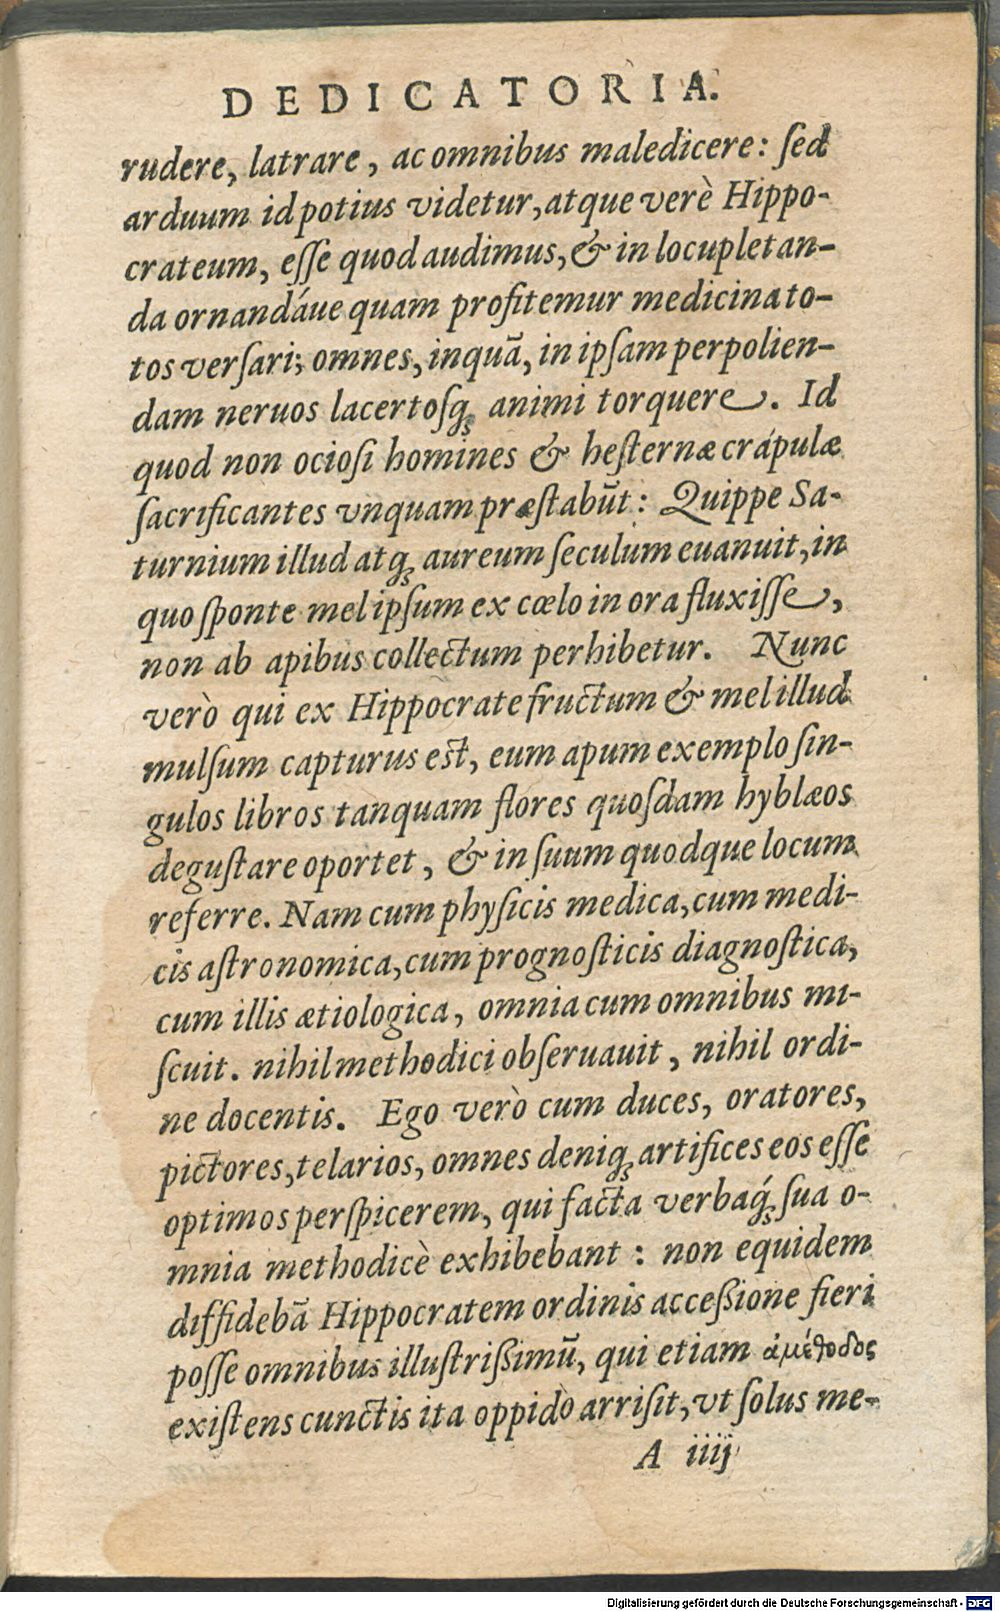 DEDICATORIA.
rudere, latrare, ac omnibus maledicere: ſed
arduum id potius videtur, atque verè Hippo-
crateum, eſſe quod audimus, & in locupletan-
da ornandáue quam profitemur medicina to-
tos verſari; omnes, inquã, in ipſam perpolien-
dam neruos lacertoſq́ue animi torquere. Id
quod non ocioſi homines & heſternæ crápulæ
ſacrificantes vnquam præſtabũt: Quippe Sa-
turnium illud atq; aureum ſeculum euanuit, in
quo ſponte mel ipſum ex cœlo in ora fluxiſſe,
non ab apibus collectum perhibetur. Nunc
verò qui ex Hippocrate fructum & mel illud
mulſum capturus est, eum apum exemplo ſin-
gulos libros tanquam flores quoſdam hyblæos
deguſtare oportet, & in ſuum quodque locum
referre. Nam cum phyſicis medica, cum medi-
cis aſtronomica, cum prognoſticis diagnoſtica,
cum illis ætiologica, omnia cum omnibus mi-
ſcuit. nihil methodici obſeruauit, nihil ordi-
ne docentis. Ego verò cum duces, oratores,
pictores, telarios, omnes deniq; artifices eos eſſe
optimos perſpicerem, qui facta verbaq́; ſua o-
mnia methodicè exhibebant: non equidem
diffidebã Hippocratem ordinis acceßione fieri
poſſe omnibus illuſtrißimũ, qui etiam ἀμέθοδος
exiſtens cunctis ita oppidò arriſit, vt ſolus me-
A iiij
Digitalisierung gefördert durch die Deutsche Forschungsgemeinschaft - DFG